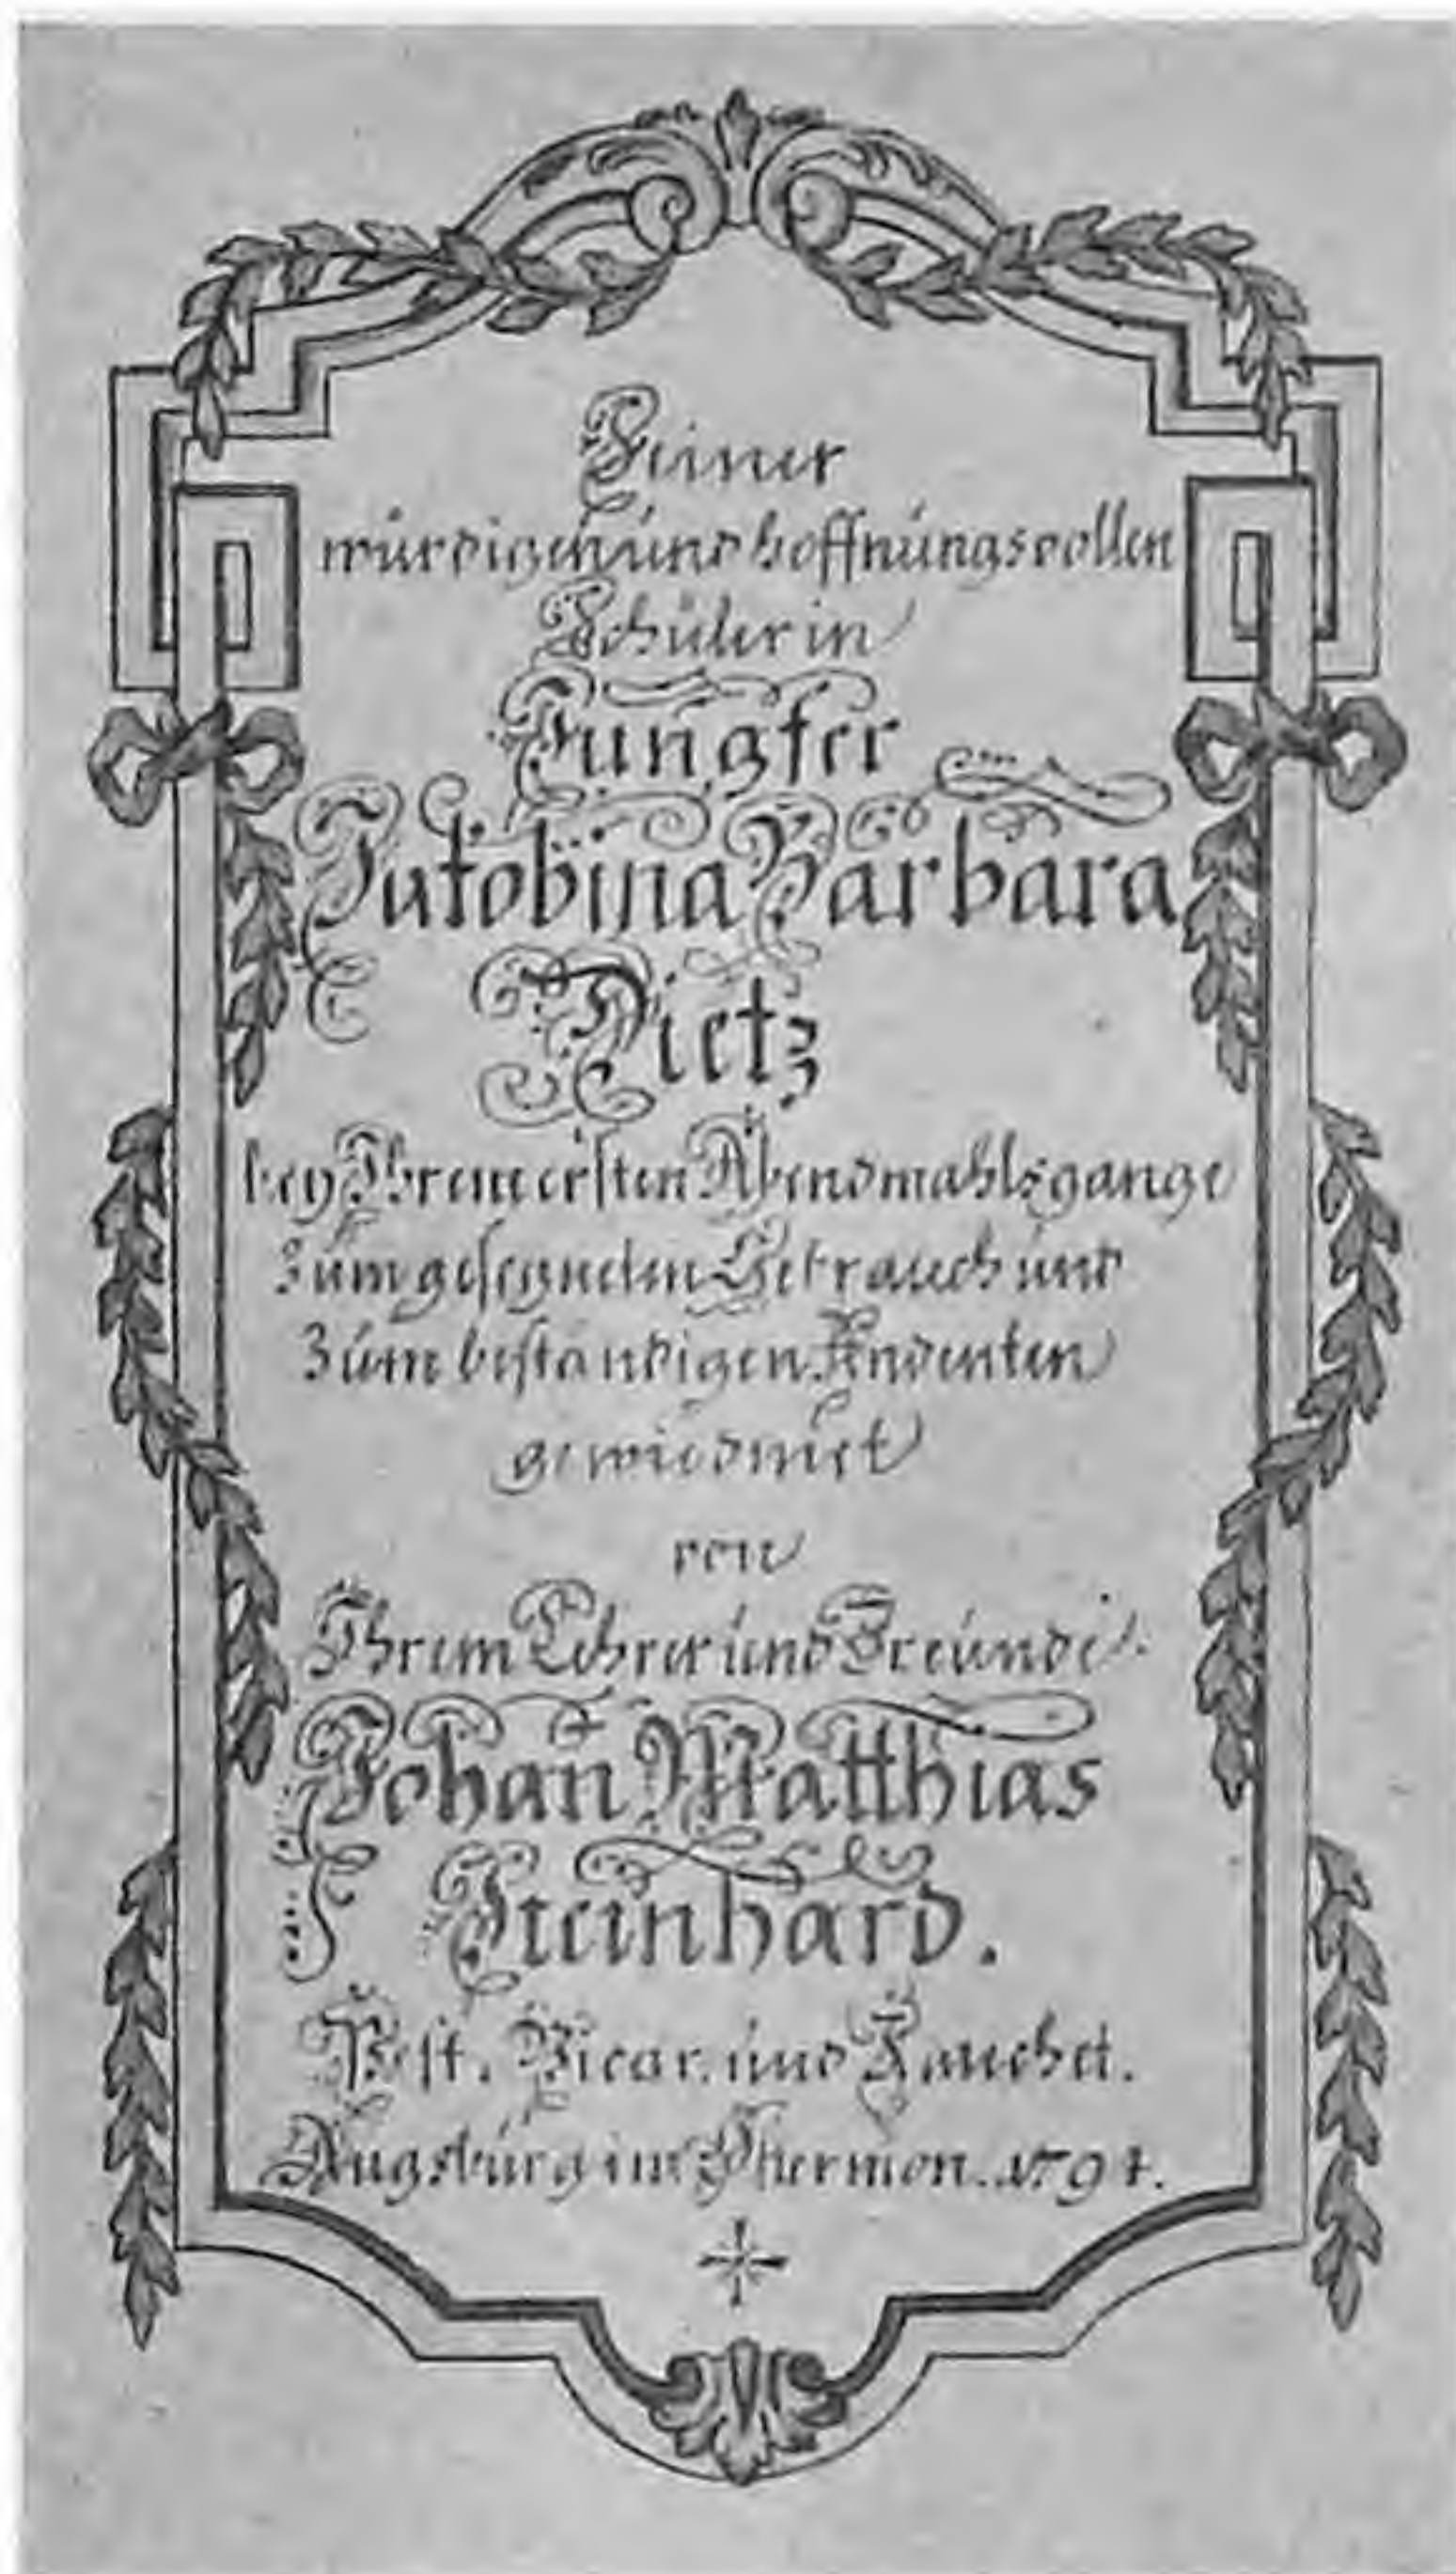 Seiner
würdigen und hoffnungsvollen
Schülerin
Jungfer
Jakobina Barbara
Dietz
bey Ihrem ersten Abendmahlsgange
Zum gesegneten Gebrauch und
Zum beständigen Andenken
gewiedmet
von
Ihrem Lehrer und Freunde.
Johan̄ Matthias
Steinhard.
Vicar. und
Augsburg im Ostermon. 1794.